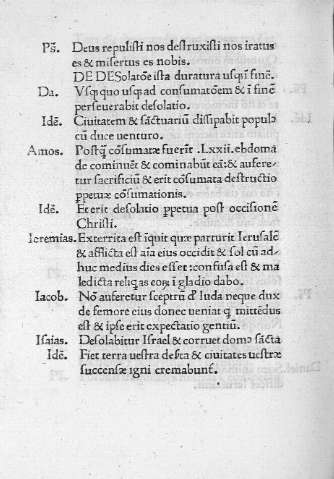 Pā. Deus repulisti nos destruxisti nos iratus
es & misertus es nobis.
DE DESolatōe ista duratura usq; ī finē.
Da. Vsq; quo usq; ad consumatōem & ī finē
perseuerabit desolatio.
Idē. Ciuitatem & sāctuariū dissipabit populꝯ
cū duce uenturo.
Amos. Postq̄ cōsumatæ fuerīt .Lxxii. ebdoma
de cominuēt & cominabūt eā: & aufere-
tur sacrificiū & erit cōsumata destructio
ppetuæ cōsumationis.
Idē. Et erit desolatio ppetua post occisionē
Christi.
Ieremias. Exterrita est īquit quæ parturit Ierusalē
& afflicta est aīa eius occidit & sol cū ad-
huc medius dies esset: confusa est & ma
ledicta reliq̄as eoꝝ ī gladio dabo.
Iacob. Nō auferetur sceptrū ď Iuda neque dux
de femore eius donec ueniat q̄ mittēdus
est & ipse erit expectatio gentiū.
Isaias. Desolabitur Israel & corruet domꝯ sācta
Idē. Fiet terra uestra deserta & ciuitates uestræ
succensæ igni cremabunt.